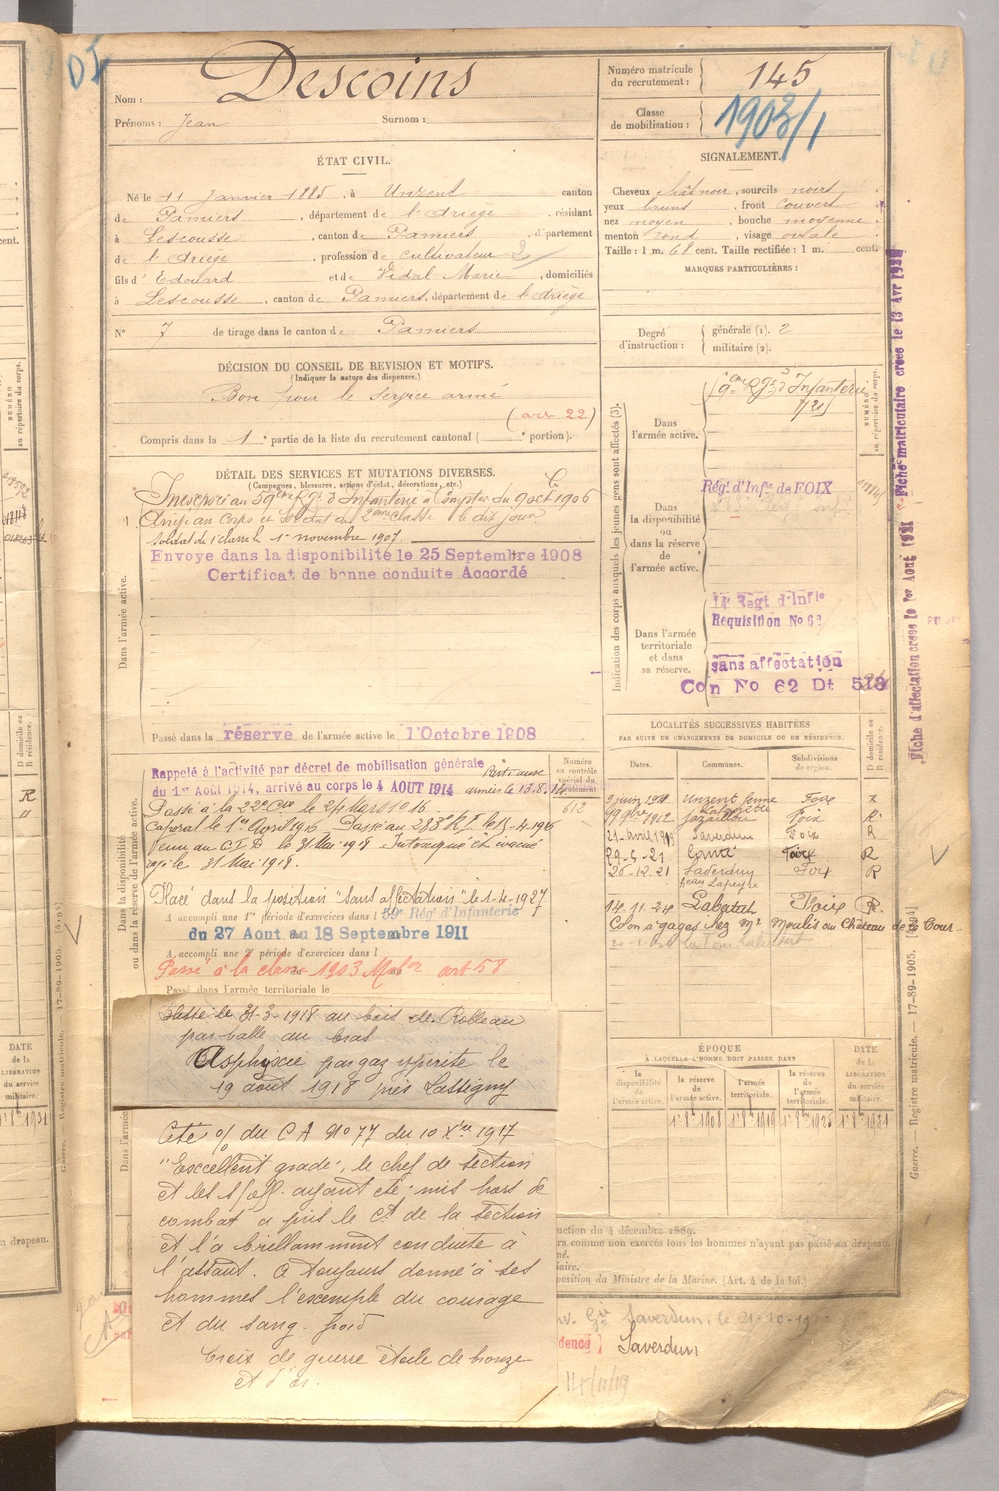 Nom : Descoins
Prénoms : Jean Surnom :
Numéro matricule du recrutement : 145
Classe de mobilisation : 1903/1
ÉTAT CIVIL.
Né le 11 Janvier 1885, à Unzent canton
de Pamiers, département de l'Ariège, résidant
à Lescousse, canton de Pamiers, département
de l'Ariège, profession de cultivateur 2
fils d'Edouard et de Vidal Marie, domiciliés
à Lescousse, canton de Pamiers, département de l'Ariège
N° 7 de tirage dans le canton de Pamiers
SIGNALEMENT.
Cheveux chât noir, sourcils noirs
yeux bruns, front couvert
nez moyen, bouche moyenne
menton rond, visage ovale
Taille : 1 m. 68 cent. Taille rectifiée : 1 m. cent.
MARQUES PARTICULIÈRES :
Degré d'instruction : générale (1). 2
militaire (2).
DÉCISION DU CONSEIL DE REVISION ET MOTIFS.
(Indiquer la nature des dispenses.)
Bon pour le service armé
(art 22)
Compris dans la 1e partie de la liste du recrutement cantonal ( e portion).
DÉTAIL DES SERVICES ET MUTATIONS DIVERSES.
(Campagnes, blessures, actions d'éclat, décorations, etc.)
Incorporé au 59eme Rgt d'Infanterie à Compter du 9 oct 1906
Arrivé au Corps et soldat de 2eme classe le dit jour
soldat de 1e classe le 1er novembre 1907.
Envoyé dans la disponibilité le 25 Septembre 1908
Certificat de bonne conduite Accordé
Dans l'armée active.
Passé dans la réserve de l'armée active le 1er Octobre 1908
Rappelé à l'activité par décret de mobilisation générale
du 1er Août 1914, arrivé au corps le 4 AOUT 1914
Parti aux armées le 13.8.14
Passé à la 22e Cie le 24 Mars 1916
Caporal le 1er Avril 1916 Passé au 283e R I le 15-4-1916
le 31 Mai 1918 Intoxiqué et évacué
le 31 Mai 1918.
Placé dans la position "sans affectation" le 1-4-1927
A accompli une 1re période d'exercices dans l 59e Rég. d'Infanterie
du 27 Aout au 18 Septembre 1911
A accompli une 2e période d'exercices dans l
Passé à la classe 1903 art 58
Passé dans l'armée territoriale le
Dans la disponibilité ou dans la réserve de l'armée active.
Numéro au contrôle spécial du recrutement.
612
Blessé le 31-3-1918 au bois de Rolleau
par balle au bras
Asphyxié par gaz ypérite le
19 août 1918 près Lassigny
Cité o/ du C A No 77 du 10 Xbre 1917
"Excellent gradé, le chef de section
et les s/off. ayant été mis hors de
combat a pris le Ct de la section
et l'a brillamment conduite à
l'assaut. A toujours donné à ses
hommes l'exemple du courage
et du sang-froid
Croix de guerre étoile de bronze
et d'or.
Indication des corps auxquels les jeunes gens sont affectés (3).
NUMÉRO au répertoire du corps.
Dans l'armée active.
59eme Rgt d'Infanterie
Dans la disponibilité ou dans la réserve de l'armée active.
Régt d'Infie de FOIX
Dans l'armée territoriale et dans sa réserve.
14e Regt d'Infie
Requisition No 62
sans affectation
Con No 62 Dt 513
Fiche matriculaire créée le 13 Avr
Fiche d'affectation créée le 1er Aout
LOCALITÉS SUCCESSIVES HABITÉES
PAR SUITE DE CHANGEMENTS DE DOMICILE OU DE RÉSIDENCE.
Dates. Communes. Subdivisions de région. D domicile ou R résidence.
9 juin Unzent ferme Foix
1912 Foix R
21-avril 1919 Saverdun Foix R
29-5-21 Canté Foix R
26-12-21 Saverdun Foix R
14.11-24 Labatut Foix R
Colon à gages chez Mr Moulis au Château de la Cour
ÉPOQUE
À LAQUELLE L'HOMME DOIT PASSER DANS
la disponibilité de l'armée active.
la réserve de l'armée active.
l'armée territoriale.
la réserve de l'armée territoriale.
DATE de la LIBÉRATION du service militaire.
1er 8bre 1908 1er 8bre 1919 1er 8bre 1925 1er 8bre 1931
uction du 4 décembre 1889.
ra comme non exercés tous les hommes n'ayant pas passé au drapeau.
position du Ministre de la Marine. (Art. 4 de la loi.)
Saverdun, le 21-10-19
dence) Saverdun
Guerre. — Registre matricule. — 17-89-1905.